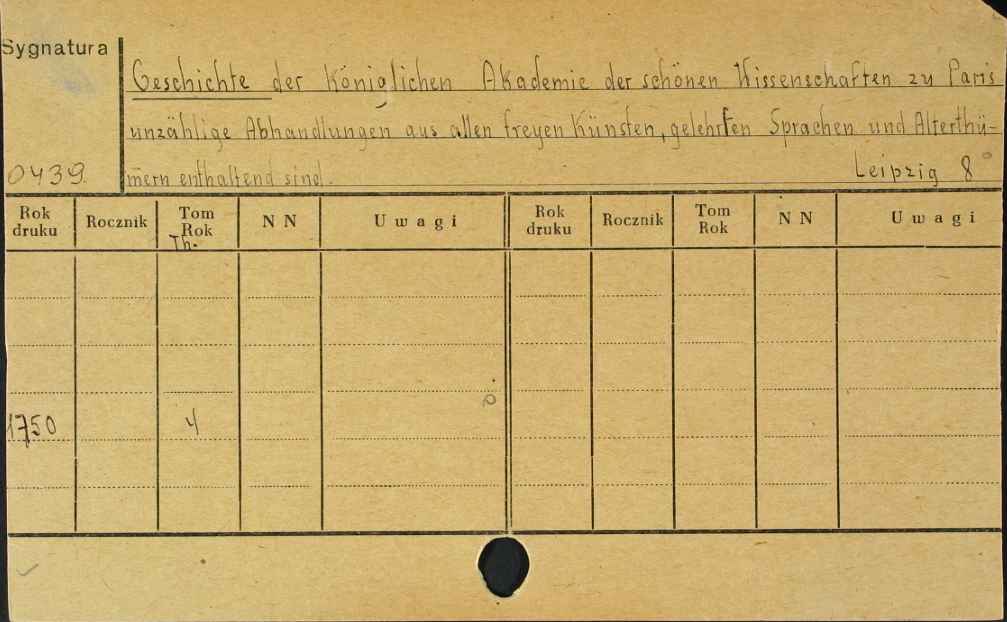 Sygnatura
Geschichte der Königlichen Akademie der schönen Wissenschaften zu Paris
unzählige Abhandlungen aus allen freyen Künsten, gelehrten Sprachen und Alterthü-
0439. mern enthaltend sind. Leipzig 8°
Rok druku Rocznik Tom Rok Th. NN Uwagi Rok druku Rocznik Tom Rok NN Uwagi
1750 4